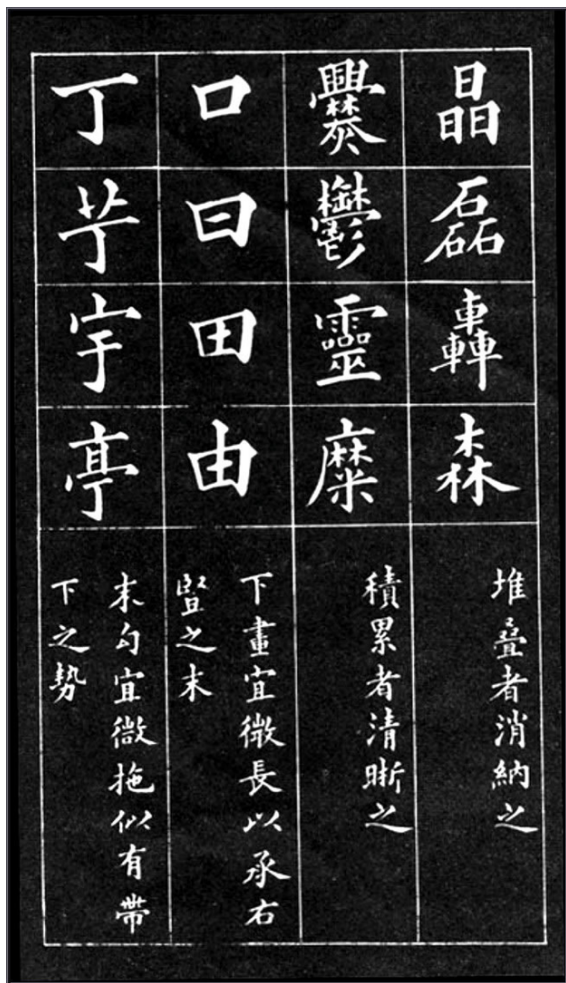 晶磊轟森
堆叠者消納之
爨鬱靈糜
積累者清晰之
口曰田由
下畫宜微長以承右
豎之末
丁芋宇亭
末勾宜微拖似有帶
下之勢